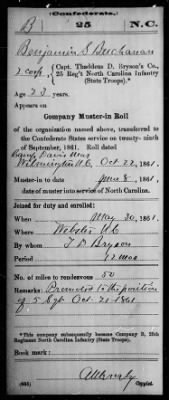 (Confederate.)
B 25 N.C.
Benjamin S Buchanan
2 Corp., Capt. Thaddeus D. Bryson's Co.,
25 Reg't North Carolina Infantry
(State Troops).*
Age 23 years.
Appears on
Company Muster-in Roll
of the organization named above, transferred to
the Confederate States service on twenty-ninth
of September, 1861. Roll dated
Camp Davis near
Wilmington N.C. Oct 22, 1861.
Muster-in to date June 8, 1861.
date of muster into service of North Carolina.
Joined for duty and enrolled:
When May 30, 1861.
Where Webster N.C.
By whom T. D. Bryson
Period 12 mos
No. of miles to rendezvous 50
Remarks: Promoted to the position
of 5 Sgt Oct. 21 1861
*This company subsequently became Company B, 25th
Regiment North Carolina Infantry (State Troops).
Book mark:
Copyist.